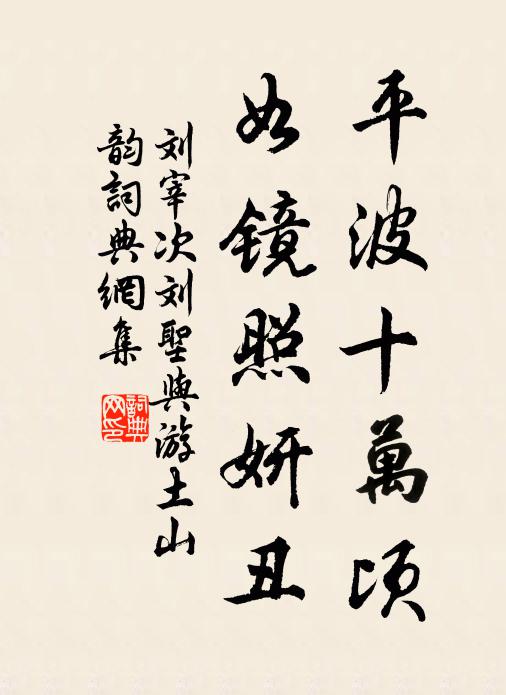 平波十萬頃
如镜照妍丑
刘宰次刘聖與游土山
韵詞典網集
詞典网印